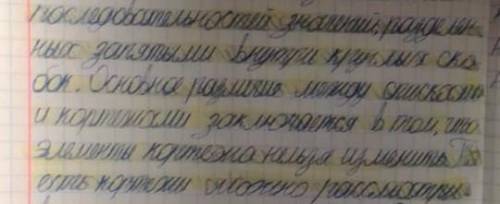 последовательностей значений, разделен-
ных запятыми внутри круглых ско-
бок. Основное различие между списками
и кортежами заключается в том, что
элементы кортежа нельзя изменить. То
есть кортежи можно рассматри-